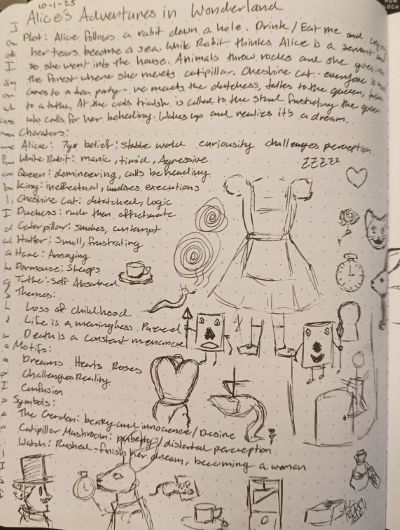 10-1-25
Alice's Adventures in Wonderland
Plot: Alice follows a rabbit down a hole. Drink / Eat me and
her tears become a sea. White Rabbit thinks Alice is a servant
so she went into the house. Animals throw rocks and she
the forest where she meets catipillar. Cheshine Cat - everyone is mad
comes to a tea party - we meets the dutchess, talks to the queen,
to a tutle. At the tarts trial, is called to the stand frustrating the queen
who calls for her beheading. Wakes up and realizes it's a dream.
Charaters:
Alice: 7yr belief: stable world curiosity challenges perception
White Rabbit: manic, timid, Agressive
Queen: domineering, calls beheading
King: ineffectual, undoes executions
Cheshire Cat: detatched, logic
Duchess: rude then affectionate
Caterpillar: smokes, contempt
Hatter: Small, frustrating
Hare: Annoying
Dormouse: Sleeps
Tutle: Self Absorbed
ZZZZZ
Themes:
Loss of childhood
Life is a meaningless
Death is a constant menance
Motifs:
Dreams Hearts Roses
Challenges Reality
Confusion
Symbols:
The Garden: beauty and innocence / Desire
Catipillar Mushroom: puberty / distorted perception
Watch: Rushed - finish her dream, becoming a woman